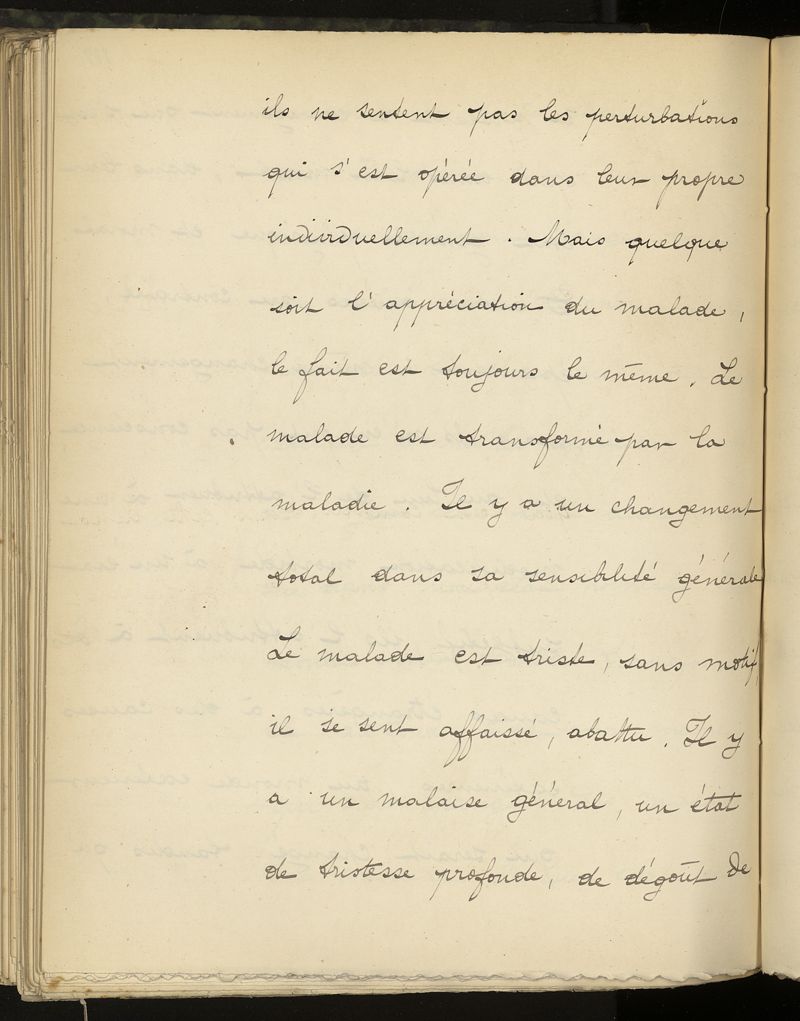 ils ne sentent pas les perturbations
qui s'est opérée dans leur propre
individuellement. Mais quelque
soit l'appréciation du malade,
le fait est toujours le même. Le
malade est transformé par la
maladie. Il y a un changement
total dans sa sensibilité générale
Le malade est triste, sans motif,
il se sent affaissé, abattu. Il y
a un malaise général, un état
de tristesse profonde, de dégoût de